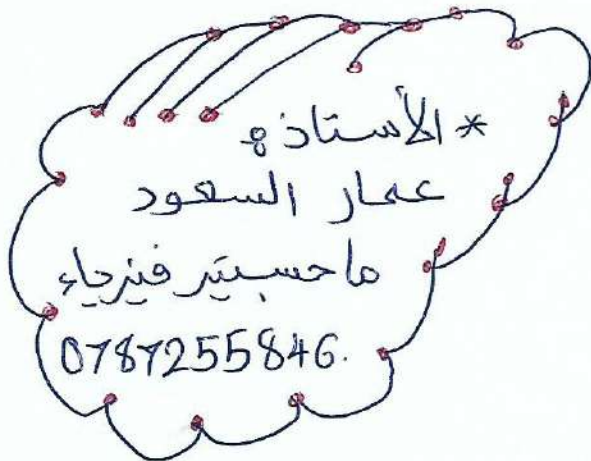 * الأستاذ:
عمار السعود
ماجستير فيزياء
0787255846.